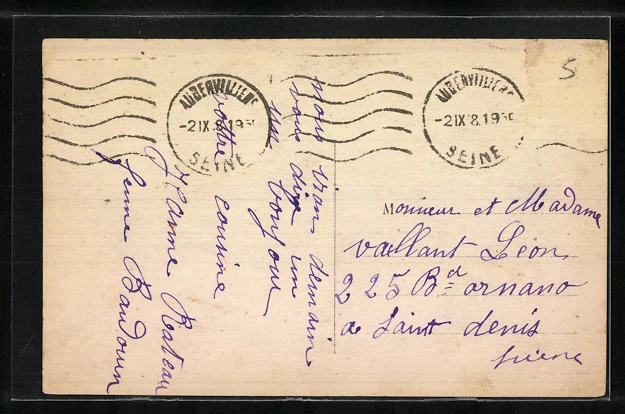 5
AUBERVILLIERS
-2 IX 8.19
SEINE
AUBERVILLIERS
-2 IX 8.19
SEINE
nous vian demain
vous dire un
un bonjour
vottre cousine
Jeanne Rateau
femme Baudouin
Monsieur et Madame
vaillant Léon
225 Bd ornano
a Saint denis
Seine